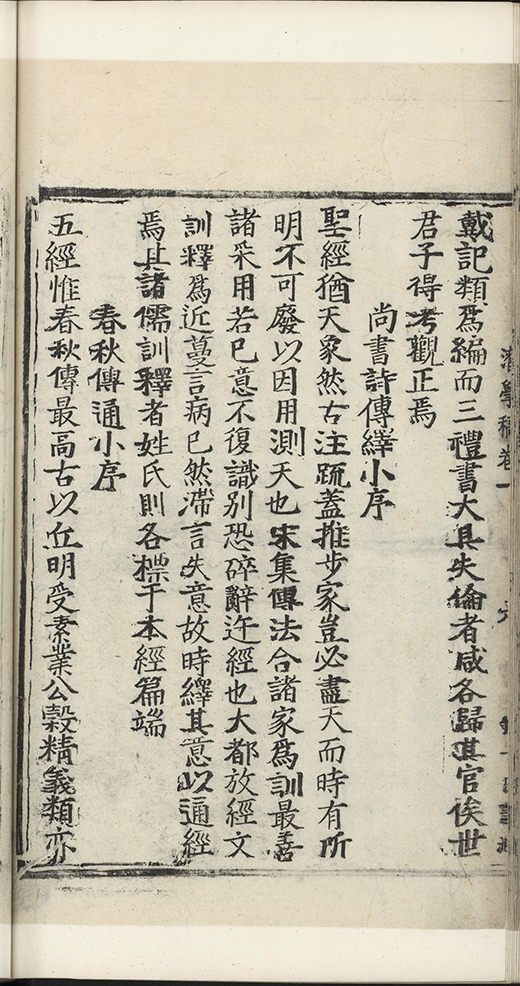 戴記類爲編而三禮書大具失倫者咸各歸其官俟世
君子得考觀正焉
尚書詩傳繹小序
聖經猶天象然古注疏蓋推步家豈必盡天而時有所
明不可廢以因用測天也宋集傳法合諸家爲訓最善
諸采用若已意不復識別恐碎辭迕經也大都放經文
訓釋爲近蔓言病已然滯言失意故時繹其意以通經
焉其諸儒訓釋者姓氏則各標于本經篇端
春秋傳通小序
五經惟春秋傳最高古以丘明受素業公穀精義類亦